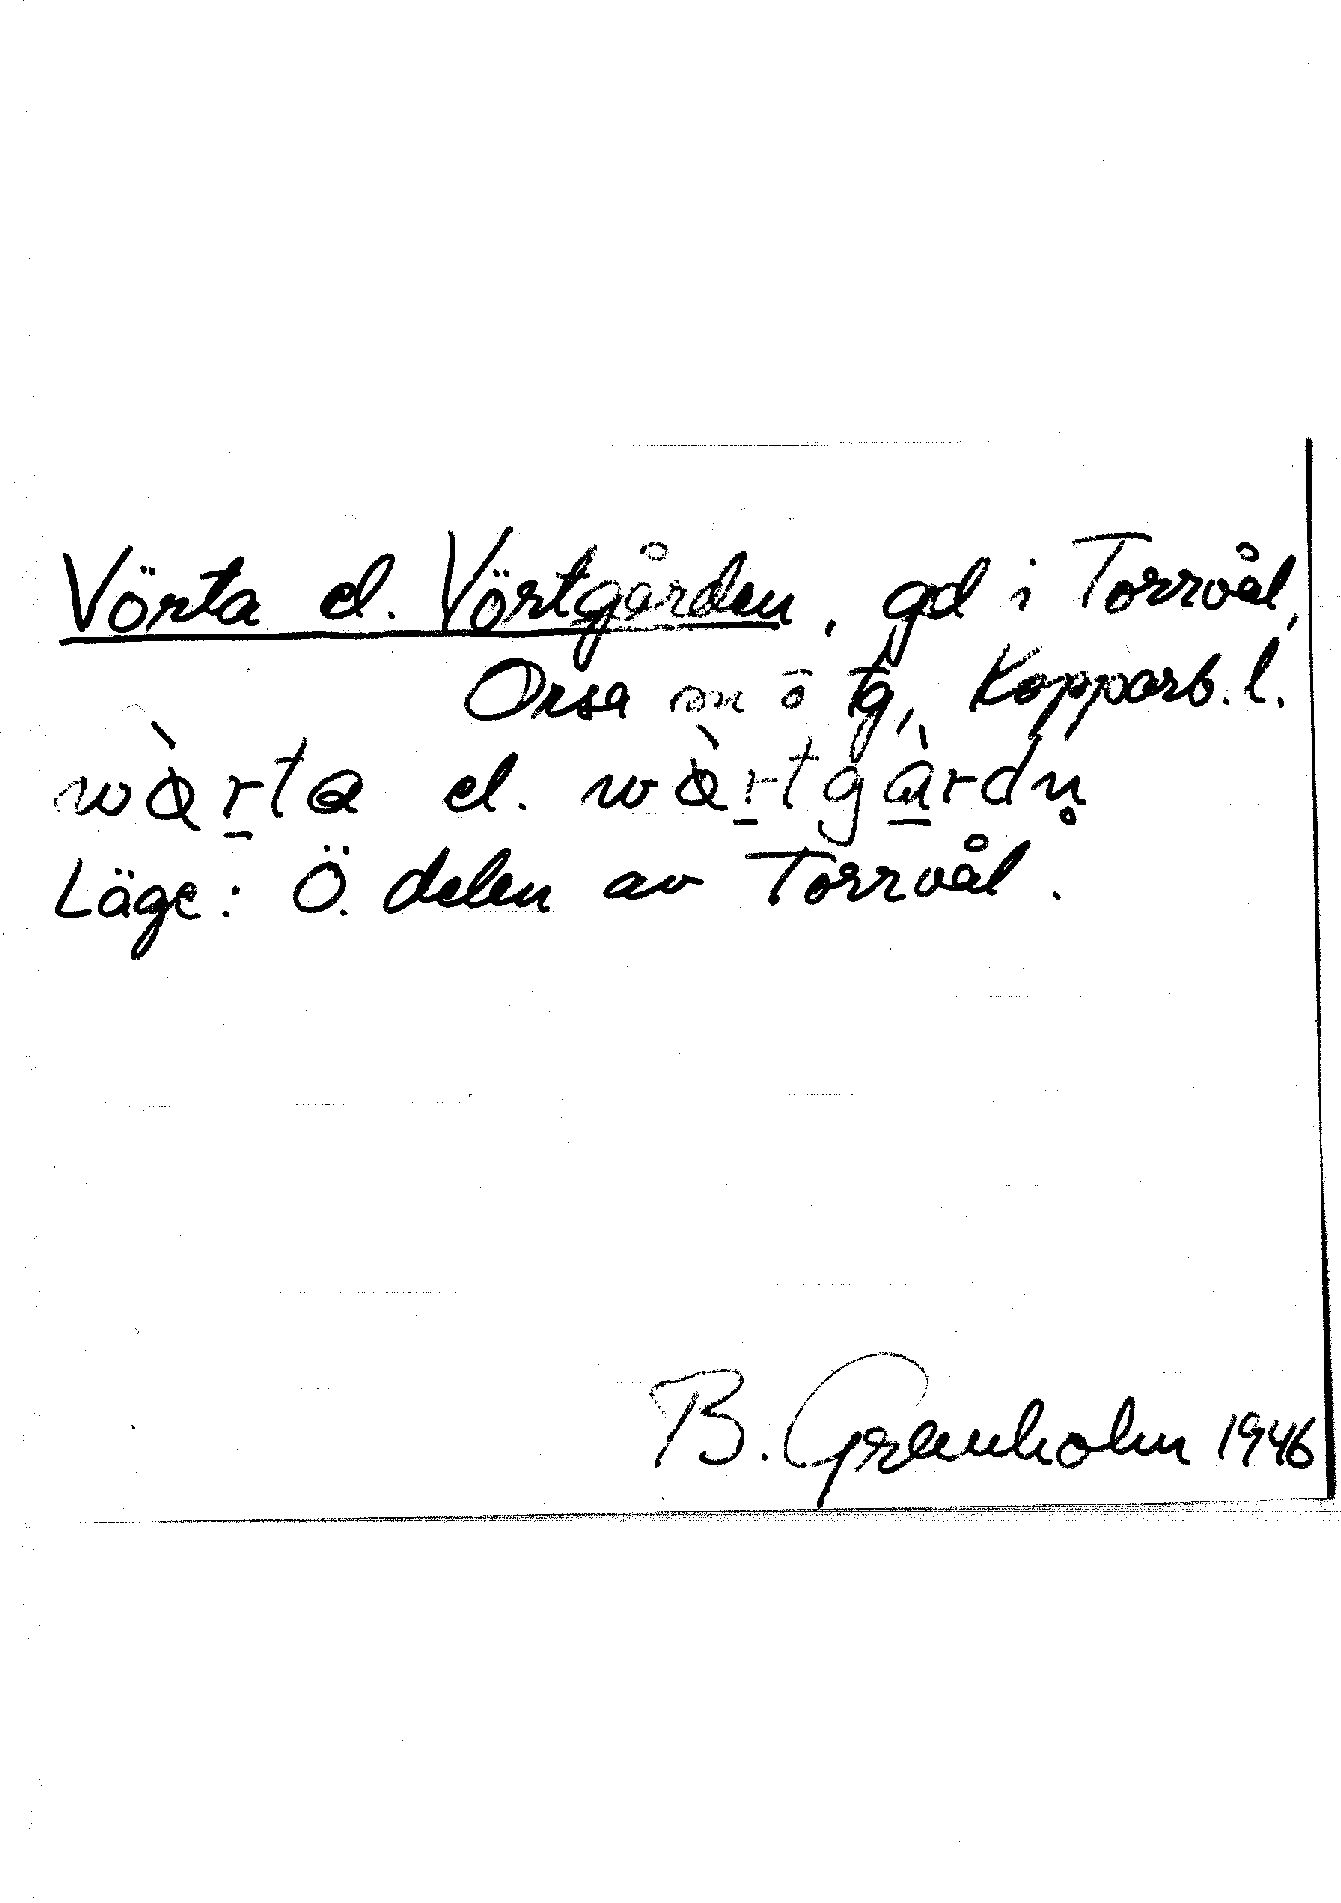 Vörta el. Vörtgården, gd i Torrvål,
Orsa sn o tg, Kopparb. l.
wὰ̀rta el. wὰ̀rtgàrdn̥
Läge: Ö. delen av Torrvål.
B. Granholm 1946